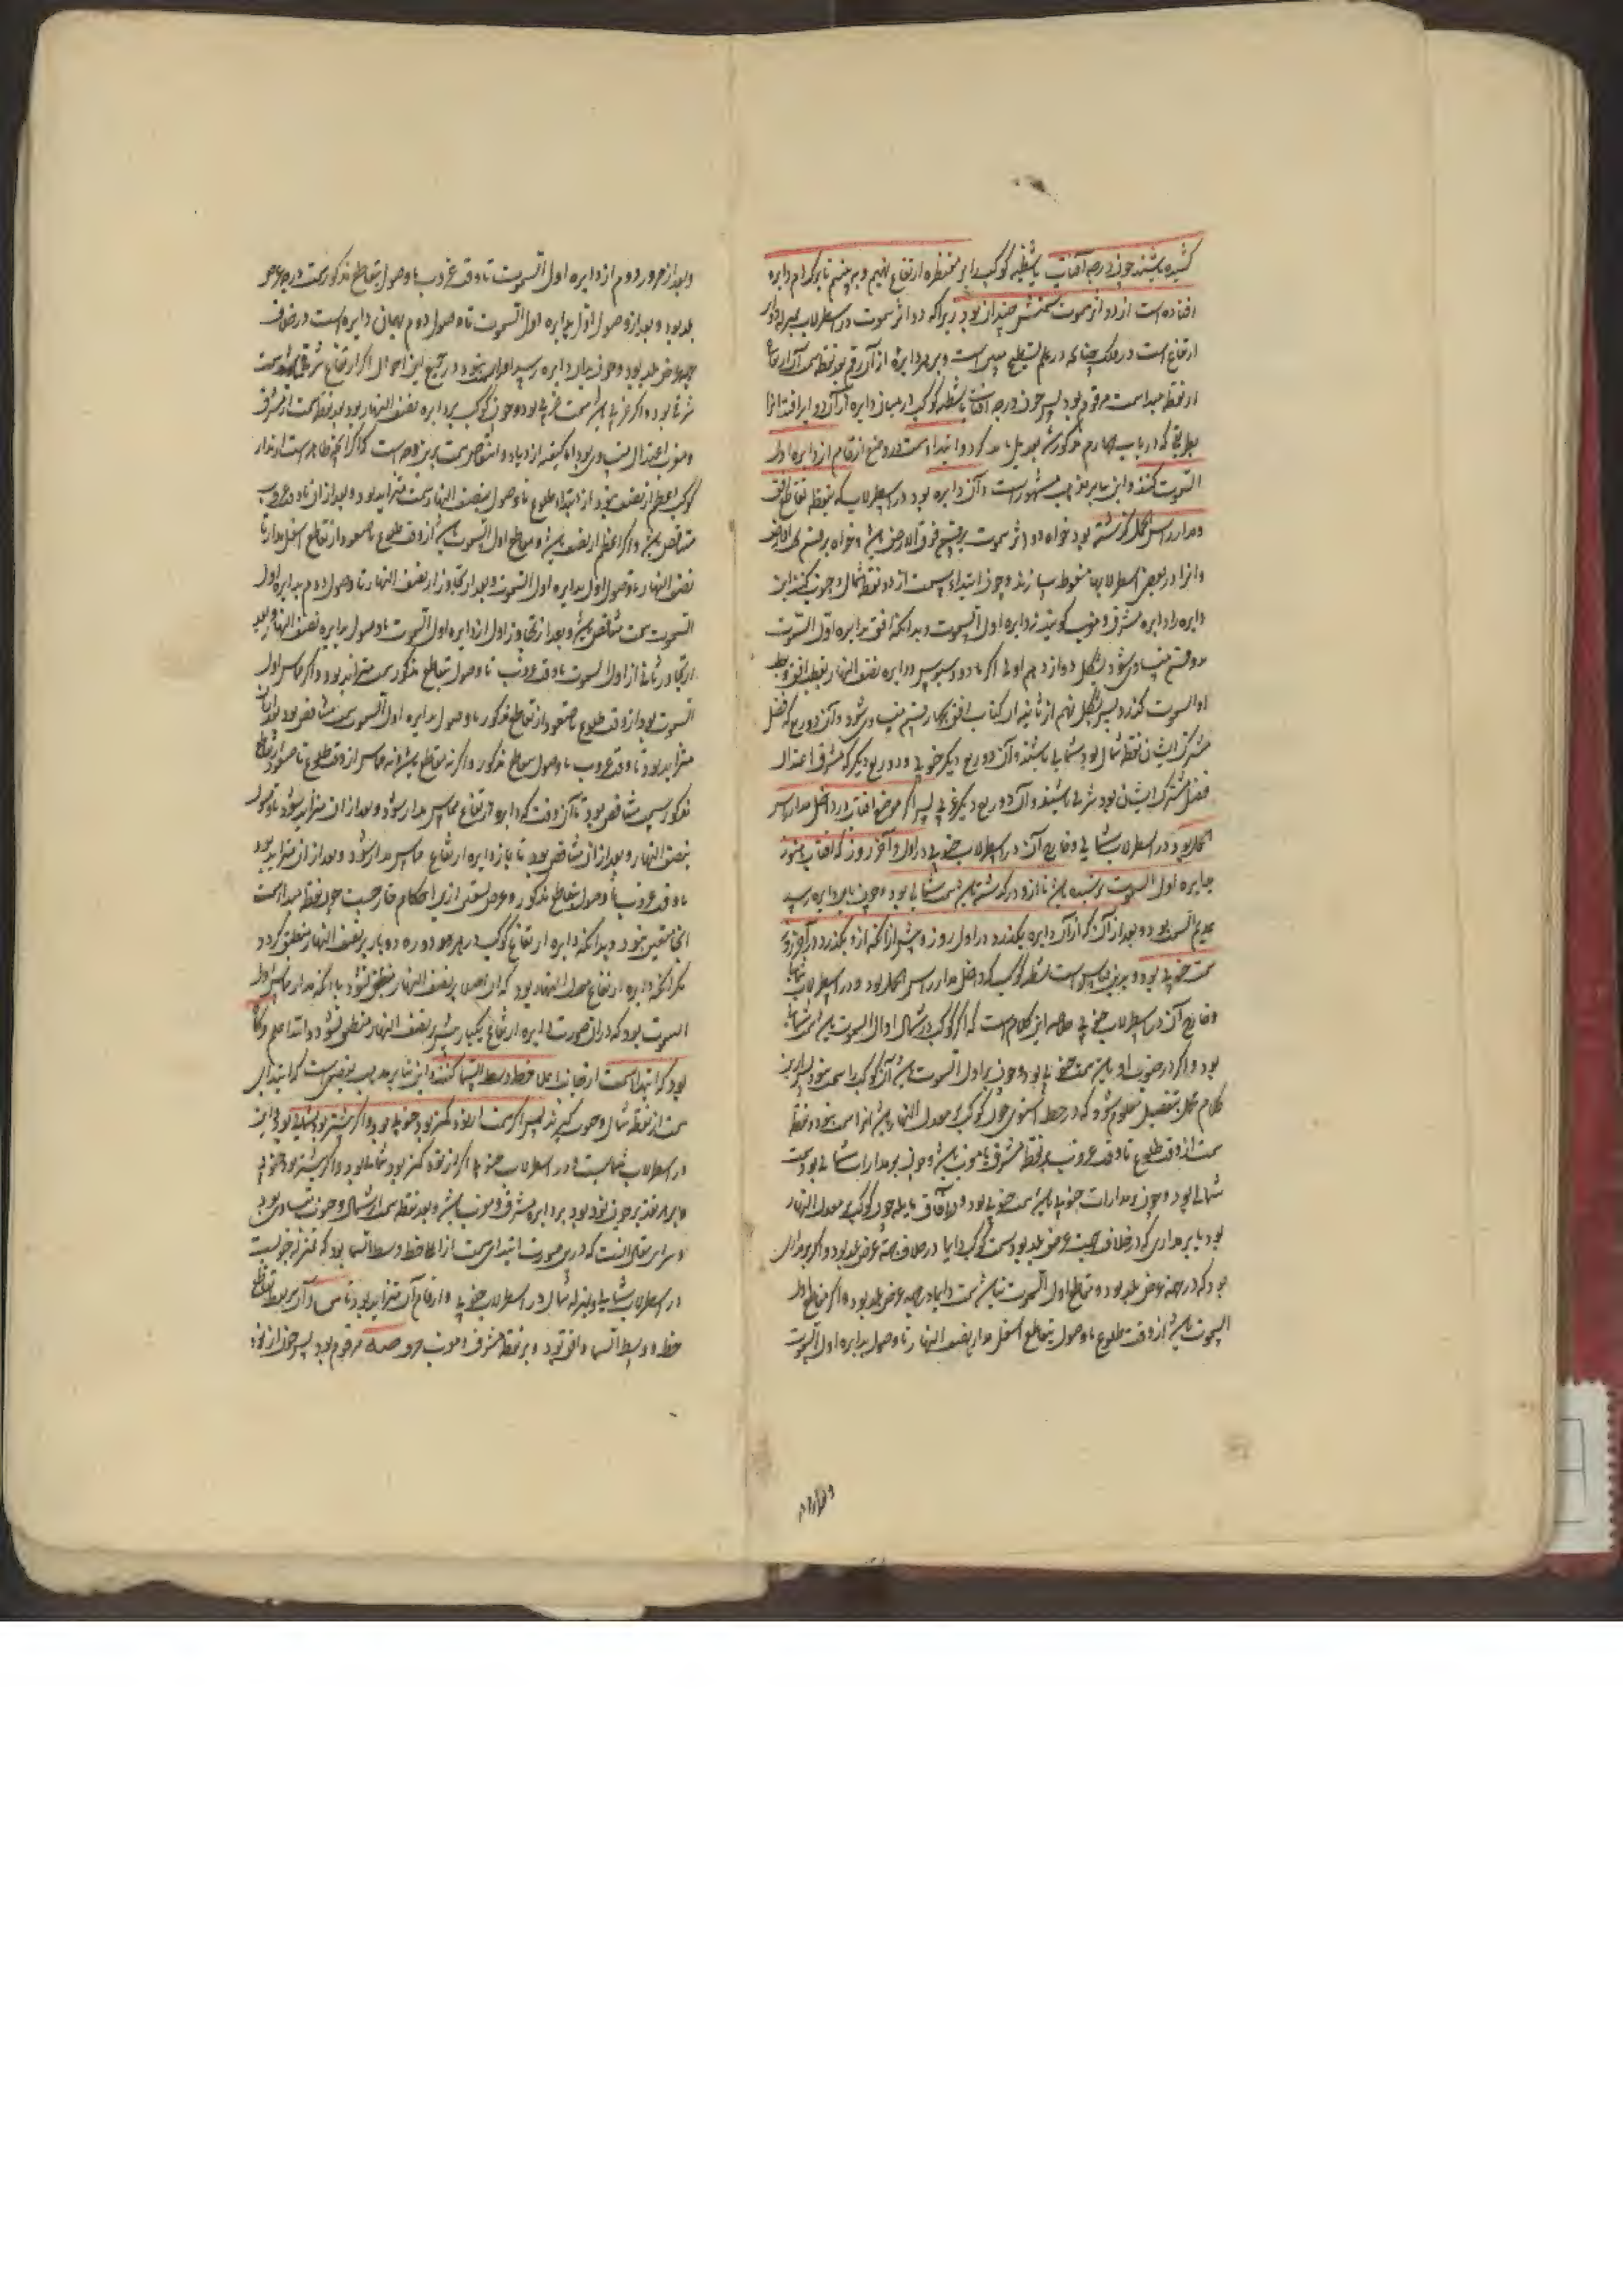 کشیده باشند چون درجه آفتاب یا شظیه کوکب را بر مقنطره ارتفاع نهیم و ببینیم تا بر کدام دایره
افتاده است از دوائر سموت سمتش چندان بود زیرا که دوائر سموت در اسطرلاب بمنزله دوائر
ارتفاع است در فلک چنانکه در علم تسطیح مبین است و بر هر دایره از آن رقم بعد نقطه سمت آن ارتفاع
از نقطه مبدا سمت مرقوم بود پس چون درجه آفتاب یا شظیه کوکب در میان دو دایره از آن دوایر افتد آنرا
بطریقی که در باب چهارم مذکور شد تعدیل باید کرد و ابتداء سمت در وضع ارقام از دایره اول
السموت کنند و این بنابر مذهب مشهور است و آن دایره بود در اسطرلاب که بنقطه تقاطع افق
و مدار راس الحمل گذشته بود خواه دوائر سموت بر قسم فوق الارض باشد و خواه بر قسم تحت الارض
و آنرا در بعضی اسطرلابها منقوط سازند و چون ابتداء سمت از دو نقطه شمال و جنوب کنند این
دایره را دایره مشرق و مغرب گویند نه دایره اول السموت و بدانکه افق بدایره اول السموت
بدو قسم متساوی شود بشکل دوازدهم اولی اکر مادوسیوس و دایره نصف النهار بقطب افق و قطب
اول السموت گذرد پس بشکل نهم از ثانیه آن کتاب افق بچهار قسم متساوی شود و آن دو ربع که فصل
مشترک ایشان نقطه شمال بود شمالی باشند و آن دو ربع دیگر جنوبی و دو ربع دیگر که مشرق اعتدال
فصل مشترک ایشان بود شرقی باشند و آن دو ربع دیگر غربی پس اگر موضع آفتاب در داخل مدار راس
الحمل بود در اسطرلاب شمالی و خارج آن در اسطرلاب جنوبی در اول و آخر روز که آفتاب هنوز
بدایره اول السموت نرسیده باشد یا ازو درگذشته باشد سمت شمالی بود و چون باین دایره رسد
عدیم السمت بود و بعد از آن که از آن دایره بگذرد در اول روز و پیش از آنکه ازو بگذرد در آخر روز
سمت جنوبی بود و برین قیاس است شظیه کوکب که داخل مدار راس الحمل بود در اسطرلاب شمالی
و خارج آن در اسطرلاب جنوبی خلاصه این کلام است که اگر کوکب در شمال اول السموت باشد سمت شمالی
بود و اگر در جنوب او باشد سمت جنوبی بود و چون بر اول السموت باشد آن کوکب را سمت نبود پس ازین
کلام مجمل بتفصیل معلوم شود که در خط استوا چون کوکب بر معدل النهار باشد او را سمت نبود و نقطه
سمت از وقت طلوع تا وقت غروب بر نقطه مشرق یا مغرب باشد و چون بر مدارات شمالی بود سمت
شمالی بود و چون بر مدارات جنوبی باشد سمت جنوبی بود و در آفاق مایله چون کوکب بر معدل النهار
بود یا بر مداری که در خلاف جهت عرض بلد بود سمت کوکب دایما در خلاف جهة عرض بلد بود و اگر بر مداری
بود که در جهة عرض بلد بود و مقاطع اول السموت نباشد سمت دایما در جهة عرض بلد بود و اگر مقاطع اول
السموت باشد از وقت طلوع تا وصول بتقاطع اسفل مدار بنصف النهار تا وصول بدایره اول السموت
و بعد از مرور دوم از دایره اول السموت تا وقت غروب یا وصول بتقاطع مذکور سمت در جهة عرض
بلد بود و بعد از وصول اول بدایره اول السموت تا وصول دوم بهمان دایره سمت در خلاف
جهة عرض بلد بود و چون بدان دایره رسد او را سمت نبود و در جمیع این احوال اگر ارتفاع شرقی باشد سمت
شرقی بود و اگر غربی باشد سمت غربی بود و چون کوکب بر دایره نصف النهار بود بعد نقطه سمت از مشرق
و مغرب اعتدال متساوی بود اما کیفیت ازدیاد و انتقاص سمت برین وجه است که اگر
کوکب اعظم از نصف بود از ابتداء طلوع تا وصول بنصف النهار سمت متزاید بود و بعد از آن تا وقت غروب
متناقص باشد و اگر اعظم از نصف باشد و مقاطع اول السموت باشد از وقت طلوع یا صعود از تقاطع اسفل مدار با
نصف النهار تا وصول اول بدایره اول السموت و بعد از تجاوز از نصف النهار تا وصول دوم بدایره اول
السموت سمت متناقص باشد و بعد از تجاوز اول از دایره اول السموت تا وصول بدایره نصف النهار و بعد
از تجاوز ثانی از اول السموت تا وقت غروب یا وصول بتقاطع مذکور سمت متزاید بود و اگر مماس اول
السموت بود از وقت طلوع یا صعود از تقاطع مذکور تا وصول بدایره اول السموت سمت متناقص بود و بعد از آن
متزاید بود تا وقت غروب یا وصول بتقاطع مذکور و اگر نه مقاطع باشد و نه مماس از وقت طلوع یا صعود از تقاطع
مذکور سمت متناقص بود تا آن وقت که دایره ارتفاع مماس مدار شود و بعد از آن متزاید شود تا وصول
بنصف النهار و بعد از آن متناقص بود تا باز دایره ارتفاع مماس مدار شود و بعد از آن متزاید بود
تا وقت غروب یا وصول بتقاطع مذکور و عرض تسعین ازین احکام خارجست چون نقطه مبدا سمت
آنجا متعین نبود و بدانکه دایره ارتفاع کوکب در هر دوره دو بار بر نصف النهار منطبق گردد
مگر آنکه دایره ارتفاع معدل النهار بود که آن اصلا بر نصف النهار منطبق نشود یا آنکه مدار مماس اول
السموت بود که در آن صورت دایره ارتفاع یکبار بیش بر نصف النهار منطبق نشود و الله اعلم و گاه
بود که ابتداء سمت از جانب اعلای خط وسط السما کنند و این بنابر مذهب بعضی است که ابتدای
سمت از نقطه شمال و جنوب گیرند پس اگر سمت از نود کمتر بود جنوبی بود و اگر بیشتر بود شمالی بود و این
در اسطرلاب شمالیست و در اسطرلاب جنوبی اگر از نود کمتر بود شمالی بود و اگر بیشتر بود جنوبی
و بر هر تقدیر چون نود بود بر دایره مشرق و مغرب باشد و بعد نقطه سمت از شمال و جنوب متساوی بود
که درین صورت ابتداء سمت از اعلا خط وسط السما بود که بمنزله جنوبست
در اسطرلاب شمالی و بمنزله شمال در اسطرلاب جنوبی و ارقام آن متزاید بود تا ص و آن بر نقطه تقاطع
خط وسط السما و افق بود و بر نقطه مشرق و مغرب مرقوم بود پس چون از نود